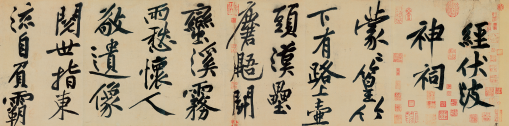 經伏波
神祠
蒙〻篁竹
下有路上壺
頭漢壘
麏鼯鬭
蠻溪霧
雨愁懷人
敬遺像
閱世指東
流自負霸